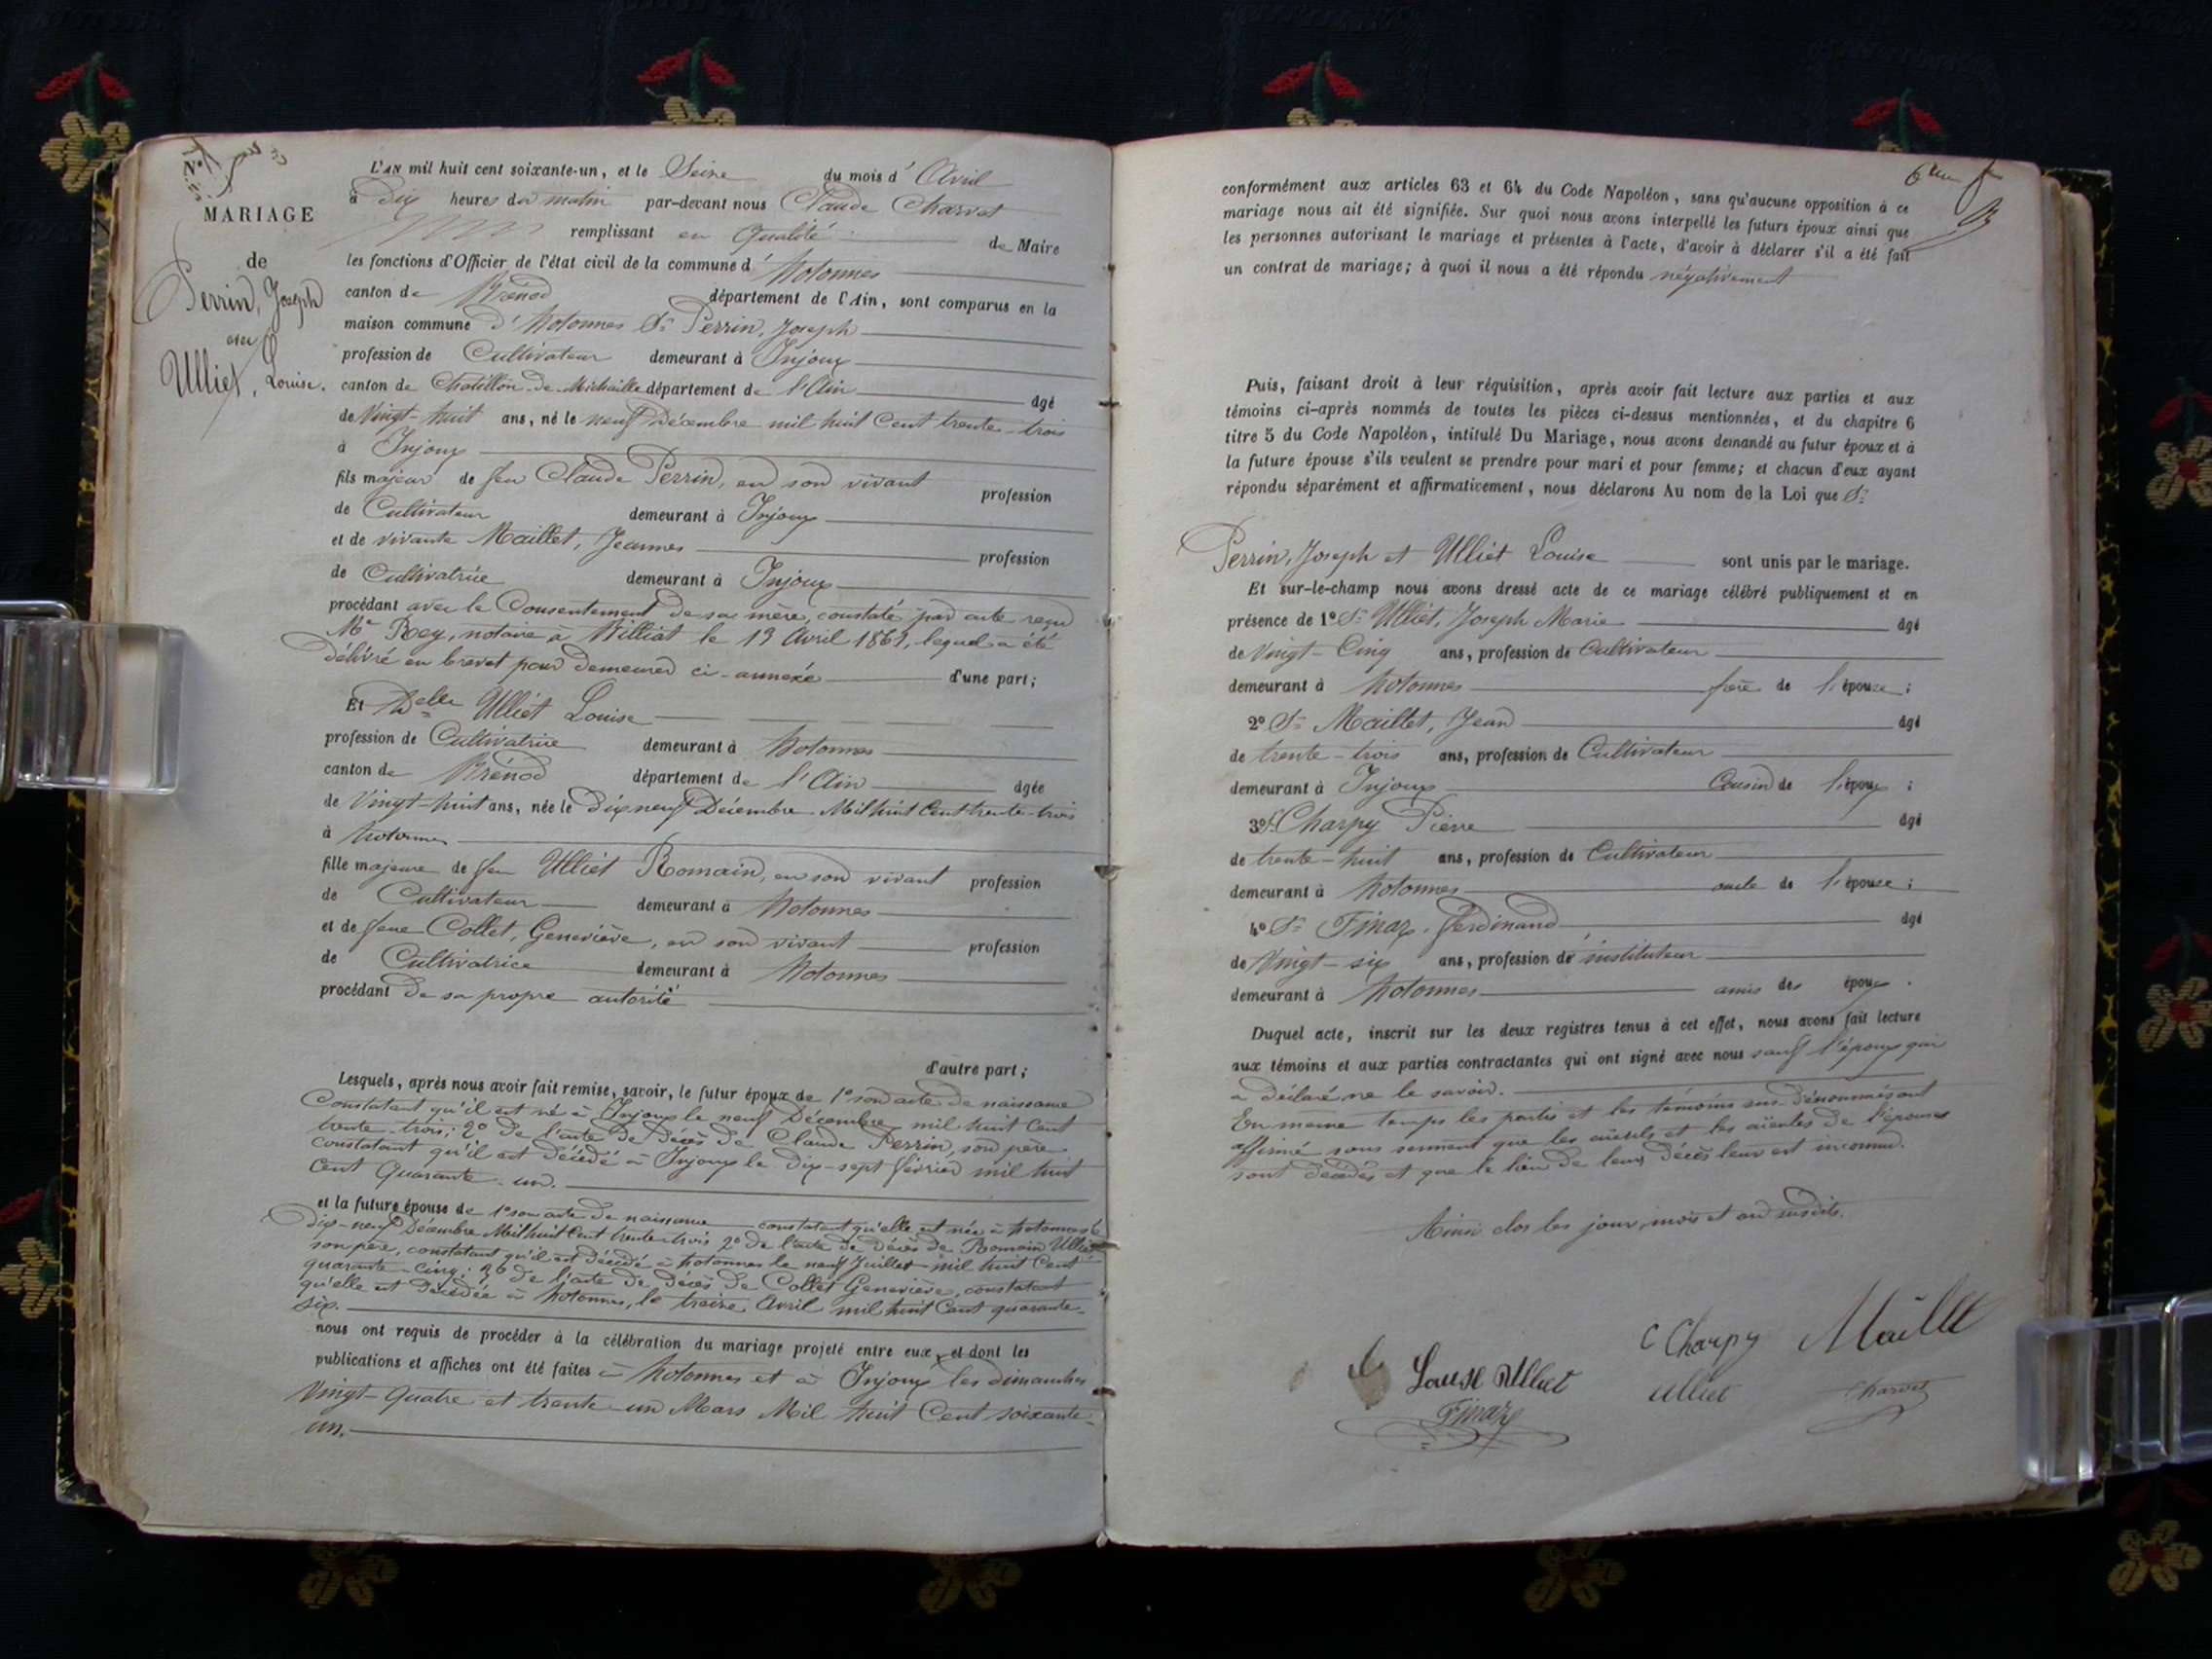 N°
MARIAGE
de
Perrin, Joseph
avec
Ulliet, Louise.
L'AN mil huit cent soixante-un, et le Seize du mois d' Avril
à Dix heures du matin par-devant nous Claude Charvet
remplissant en Qualité de Maire
les fonctions d'Officier de l'état civil de la commune d' hotonnes
canton de Brénod département de l'Ain, sont comparus en la
maison commune d'hotonnes Sr Perrin, Joseph
profession de Cultivateur demeurant à Injoux
canton de Chatillon-de-Michaille département de l'Ain âgé
de Vingt-huit ans, né le neuf Décembre mil huit Cent trente-trois
à Injoux
fils majeur de feu Claude Perrin, en son vivant profession
de Cultivateur demeurant à Injoux
et de vivante Maillet, Jeannes profession
de Cultivatrice demeurant à Injoux
procédant avec le Consentement de sa mère, constaté par acte reçu
Me Rey, notaire à Billiat le 13 Avril 1861, lequel a été
délivré en brevet pour demeurer ci-annexé d'une part;
Et Delle Ulliet Louise
profession de Cultivatrice demeurant à hotonnes
canton de Brénod département de l'Ain âgée
de Vingt-huit ans, née le Dix neuf Décembre Mil huit Cent trente-trois
à hotonnes
fille majeure de feu Ulliet Romain, en son vivant profession
de Cultivateur demeurant à hotonnes
et de feue Collet, Geneviève, en son vivant profession
de Cultivatrice demeurant à hotonnes
procédant de sa propre autorité
d'autre part;
Lesquels, après nous avoir fait remise, savoir, le futur époux de 1° son acte de naissance
Constatant qu'il est né à Injoux le neuf Décembre mil huit Cent
trente-trois; 2° de l'acte de décès de Claude Perrin, son père
constatant qu'il est décédé à Injoux le Dix-sept février mil huit
Cent Quarante-un.
et la future épouse de 1° son acte de naissance constatant qu'elle est née à hotonnes le
Dix-neuf Décembre Mil huit Cent trente trois 2° de l'acte de décès de Romain Ulliet
son père, constatant qu'il est décédé à hotonnes le neuf Juillet mil huit Cent
quarante-cinq; de l'acte de décès de Collet Geneviève, constatant
qu'elle est décédée à hotonnes, le treize Avril mil huit Cent quarante-
six.
nous ont requis de procéder à la célébration du mariage projeté entre eux, et dont les
publications et affiches ont été faites à hotonnes et à Injoux les dimanches
Vingt-Quatre et trente-un Mars Mil huit Cent soixante-
un.
conformément aux articles 63 et 64 du Code Napoléon, sans qu'aucune opposition à ce
mariage nous ait été signifiée. Sur quoi nous avons interpellé les futurs époux ainsi que
les personnes autorisant le mariage et présentes à l'acte, d'avoir à déclarer s'il a été fait
un contrat de mariage; à quoi il nous a été répondu négativement
Puis, faisant droit à leur réquisition, après avoir fait lecture aux parties et aux
témoins ci-après nommés de toutes les pièces ci-dessus mentionnées, et du chapitre 6
titre 5 du Code Napoléon, intitulé Du Mariage, nous avons demandé au futur époux et à
la future épouse s'ils veulent se prendre pour mari et pour femme; et chacun d'eux ayant
répondu séparément et affirmativement, nous déclarons Au nom de la Loi que Sr
Perrin, Joseph et Ulliet Louise sont unis par le mariage.
Et sur-le-champ nous avons dressé acte de ce mariage célébré publiquement et en
présence de 1° Sr Ulliet, Joseph Marie âgé
de Vingt-Cinq ans, profession de Cultivateur
demeurant à hotonnes frère de l'épouse;
2° Sr Maillet, Jean âgé
de trente-trois ans, profession de Cultivateur
demeurant à Injoux Cousin de l'époux;
3° Sr Charpy Pierre âgé
de trente-huit ans, profession de Cultivateur
demeurant à hotonnes oncle de l'épouse;
4° Sr Finaz, Ferdinand âgé
de Vingt-six ans, profession de instituteur
demeurant à hotonnes amis des époux.
Duquel acte, inscrit sur les deux registres tenus à cet effet, nous avons fait lecture
aux témoins et aux parties contractantes qui ont signé avec nous sauf l'époux qui
a déclaré ne le savoir.
En même temps les partis et les témoins sus-dénommés ont
affirmé sous serment que les aïeuls et les aïeules de l'épouse
sont décédés et que le lieu de leurs décès leur est inconnu.
Ainsi clos les jour, mois et an susdits.
C Charpy Maillet
Louise Ulliet Ulliet Charvet
Finaz